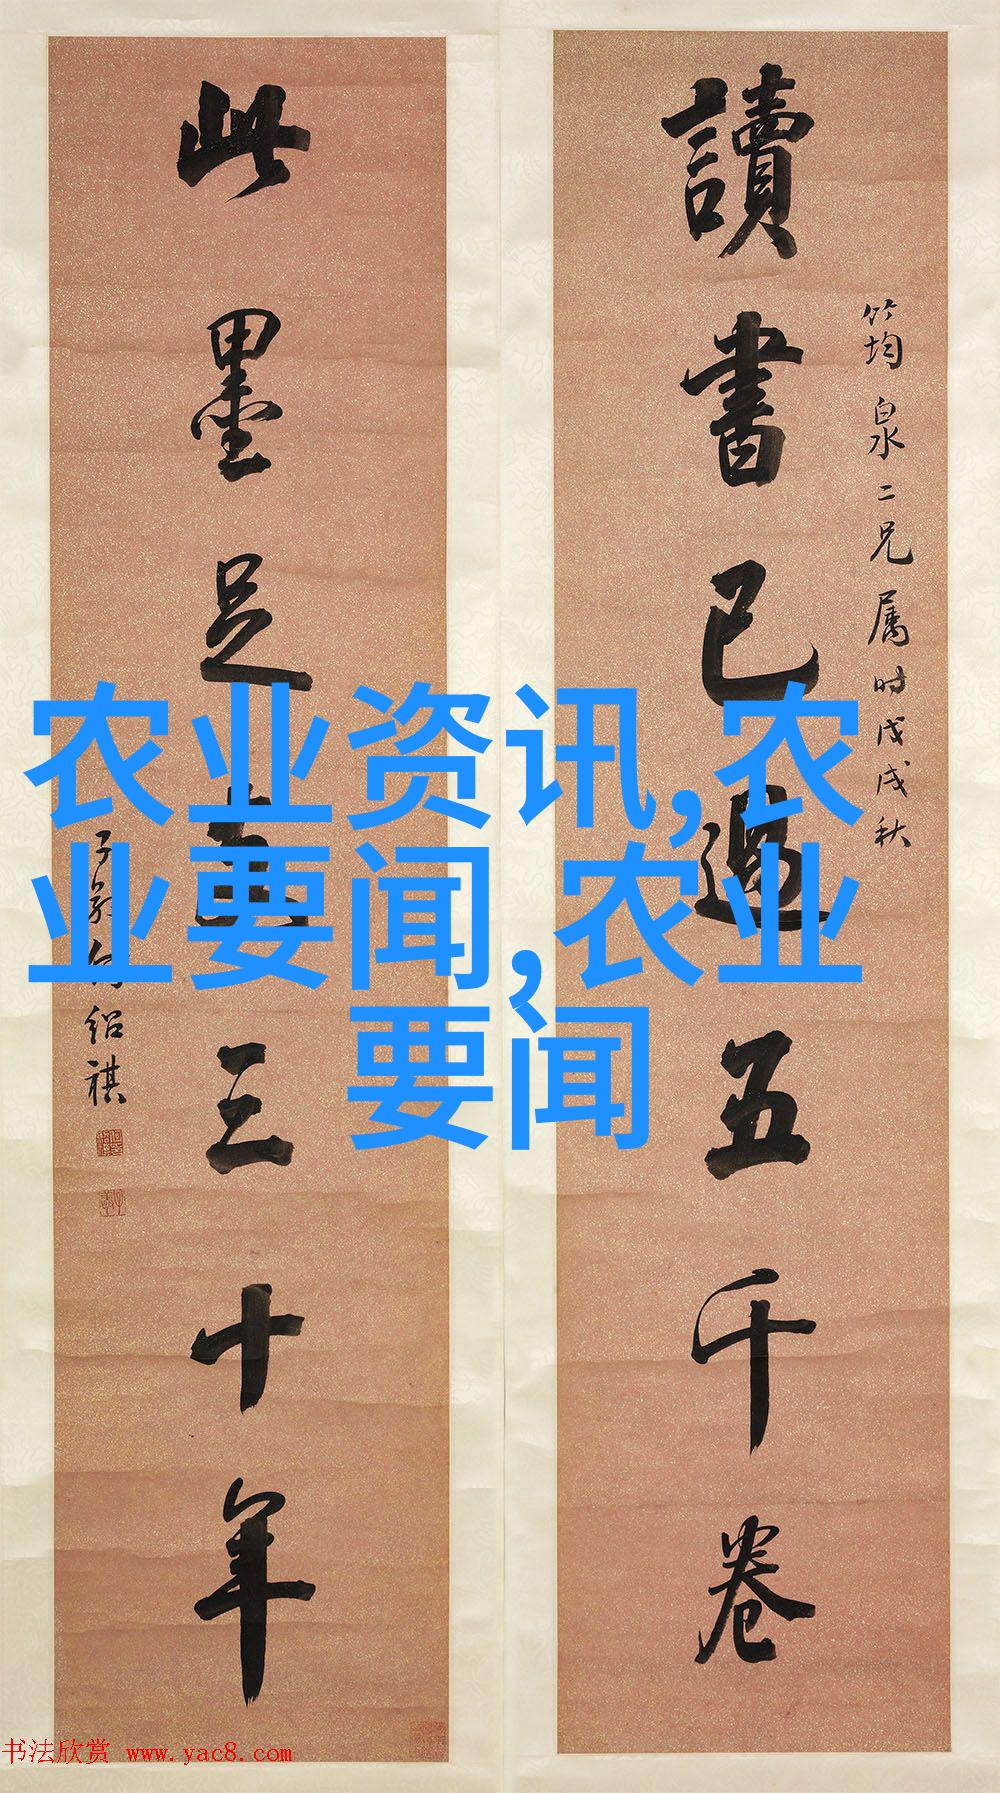 讀書已過五千卷
竹均泉二兄属時戊戌秋
此墨足支三十年
子貞何紹祺
农业资讯,农
业要闻,农业
要闻
书法欣赏 www.yac8.com